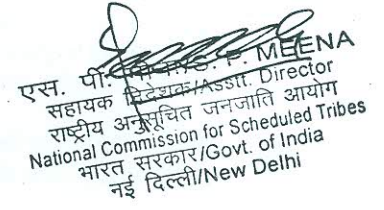 एस. पी. मीना/S. P. MEENA
सहायक निदेशक/Assit. Director
राष्ट्रीय अनुसूचित जनजाति आयोग
National Commission for Scheduled Tribes
भारत सरकार/Govt. of India
नई दिल्ली/New Delhi